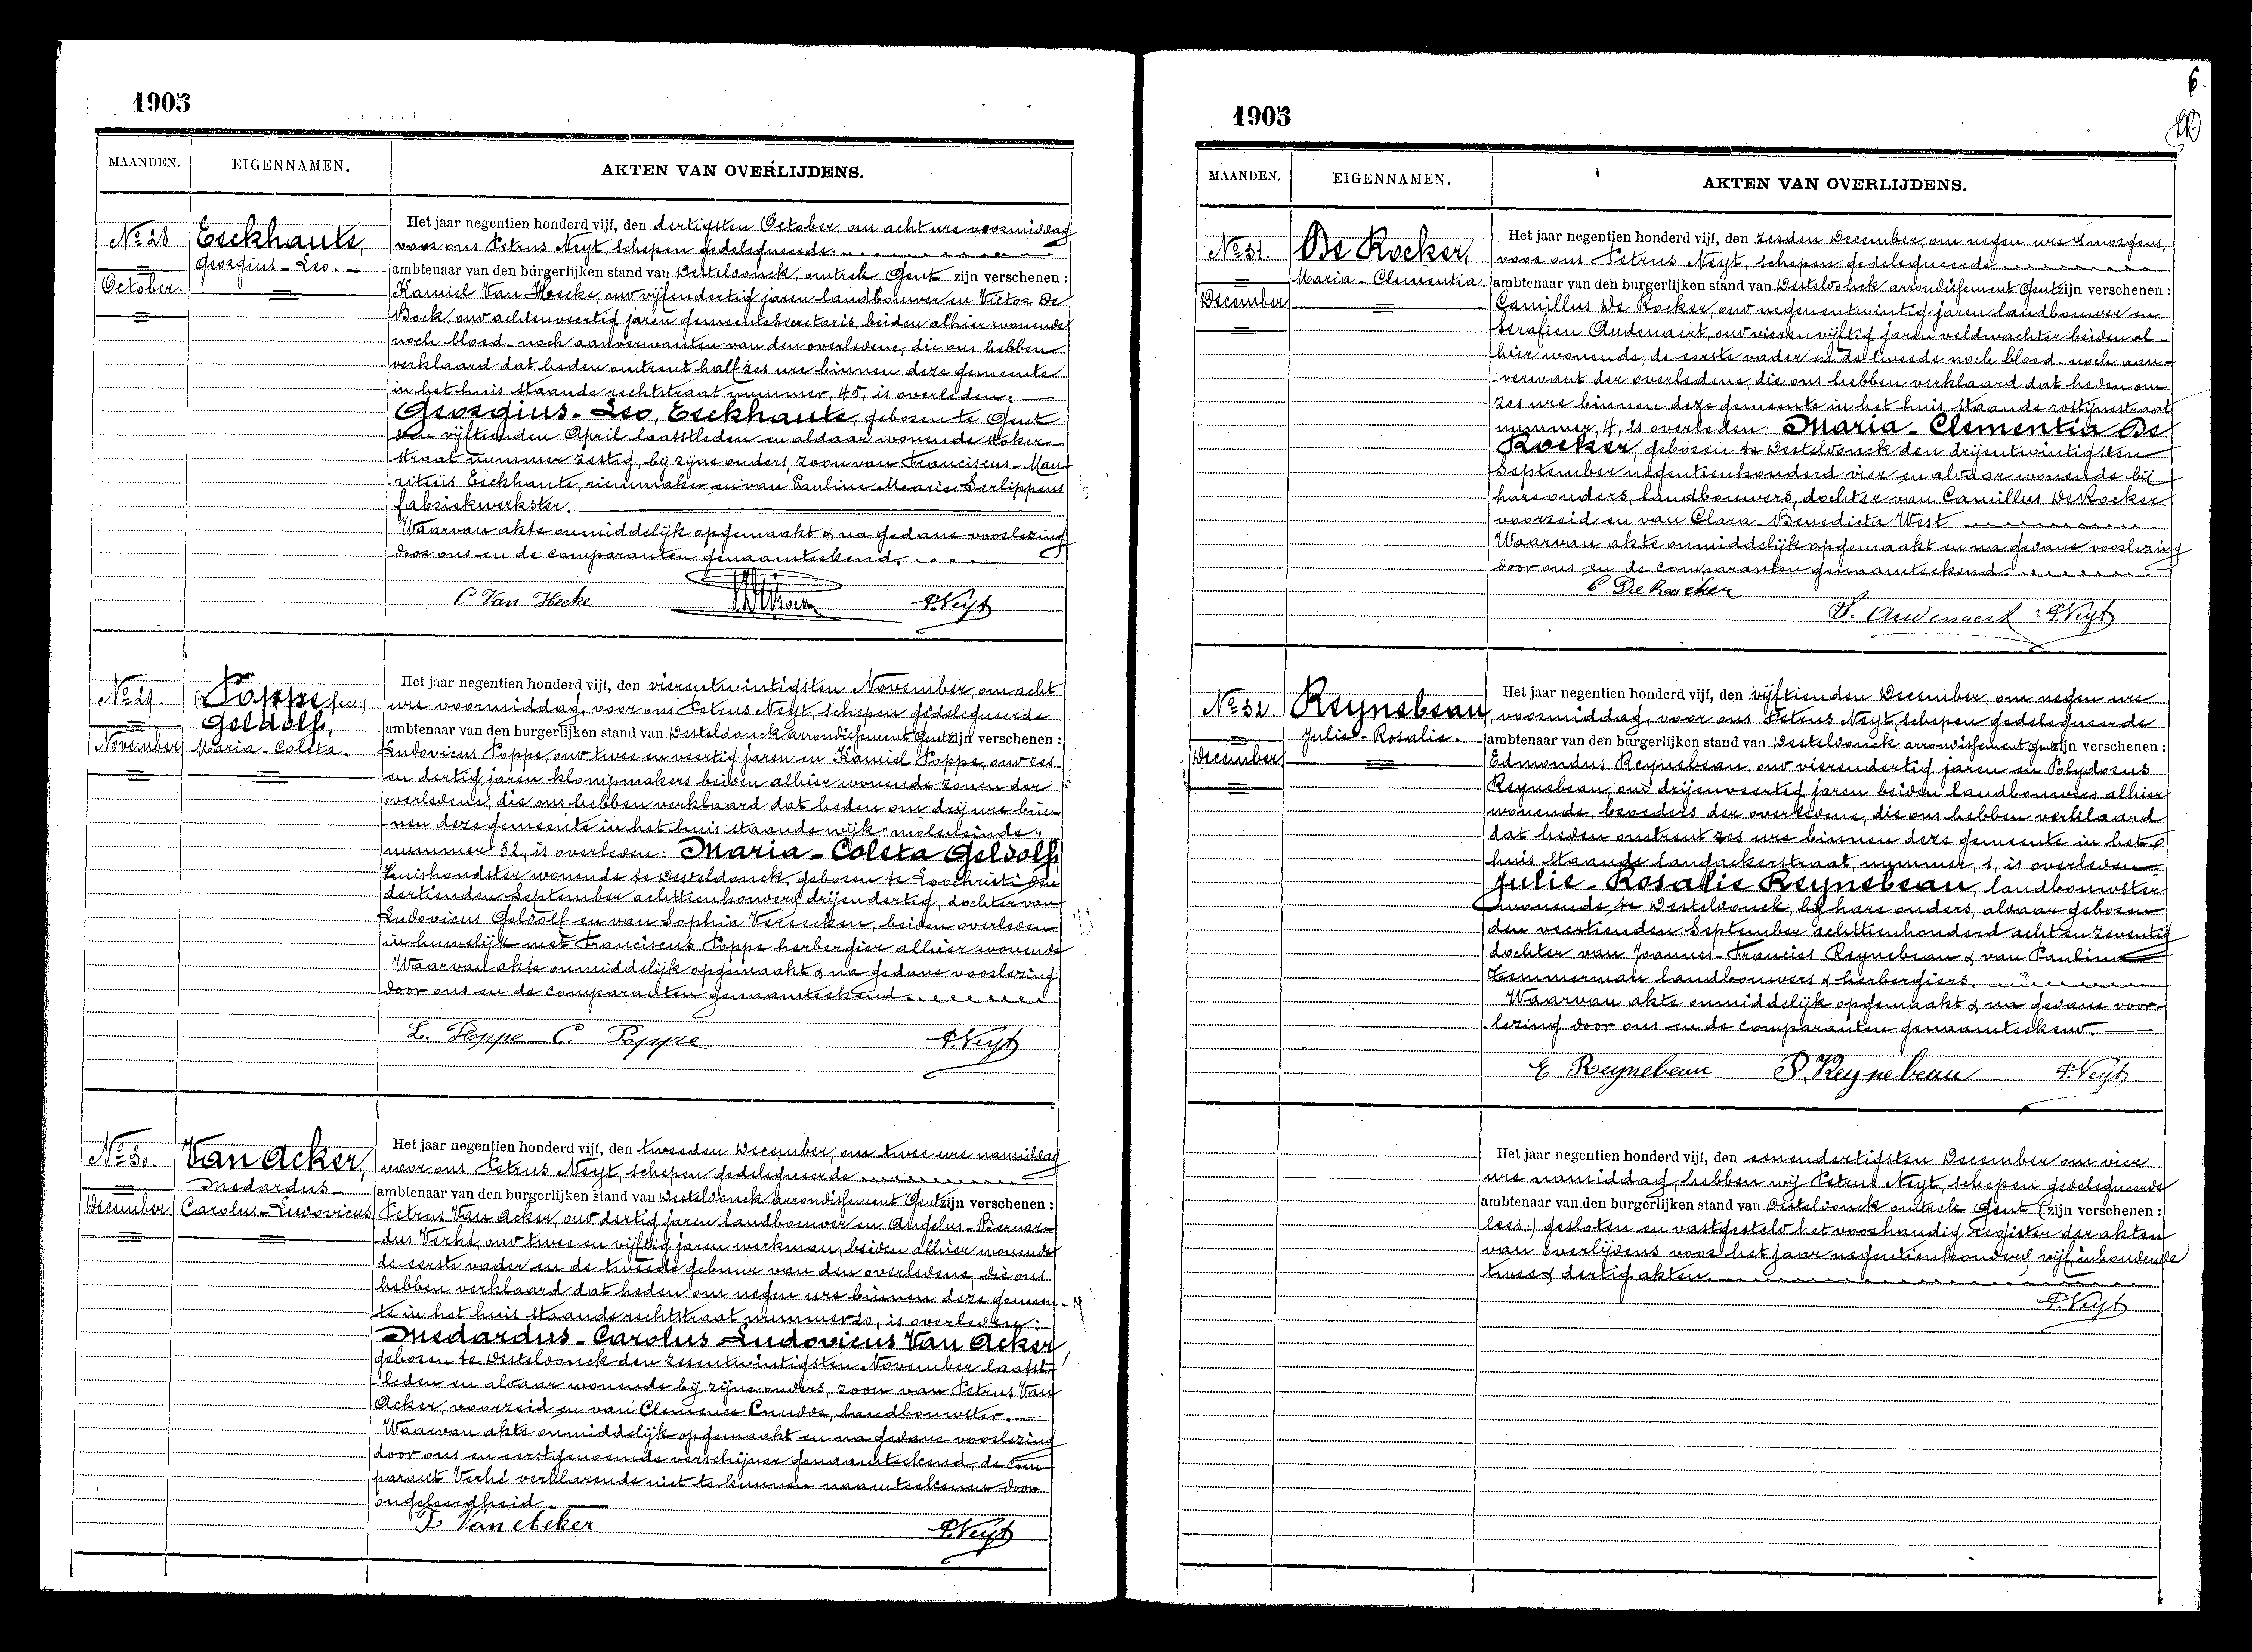 1905
MAANDEN. EIGENNAMEN. AKTEN VAN OVERLIJDENS.
No 28
October.
Eeckhaute,
Georgius-Leo.
Het jaar negentien honderd vijf, den dertigsten October, om acht ure voormiddag
voor ons Petrus Neyt, schepen gedelegueerde
ambtenaar van den burgerlijken stand van Desteldonck, omtrek Gent zijn verschenen :
Kamiel Van Hecke, oud vijfendertig jaren landbouwer en Victor De
Bock, oud achtenveertig jaren gemeentesecretaris, beiden alhier wonende
noch bloed- noch aanverwanten van den overledene, die ons hebben
verklaard dat heden omtrent half zes ure binnen deze gemeente
in het huis staande rechtstraat nummer, 45, is overleden:
Georgius-Leo, Eeckhaute, geboren te Gent
den vijftienden April laatstleden en aldaar wonende
straat nummer zestig, bij zijne ouders, zoon van Franciscus-Mau-
ritius Eeckhaute, riemmaker en van Pauline Marie Serlippens
fabriekwerkster.
Waarvan akte onmiddelijk opgemaakt & na gedane voorlezing
door ons en de comparanten genaamteekend.
C Van Hecke
P. Neyt
No 29.
November
Poppe (lees:)
Geldolf,
Maria-Coleta.
Het jaar negentien honderd vijf, den vierentwintigsten November, om acht
ure voormiddag, voor ons Petrus Neyt, schepen gedelegueerde
ambtenaar van den burgerlijken stand van Desteldonck arrondissement Gent zijn verschenen :
Ludovicus Poppe, oud twee en veertig jaren en Kamiel Poppe, oud zes
en dertig jaren klompmakers beiden alhier wonende zonen der
overledene, die ons hebben verklaard dat heden om drij ure bin-
nen deze gemeente in het huis staande wijk moleneinde
nummer 32, is overleden: Maria-Coleta Geldolf,
huishoudster wonende te Desteldonck, geboren te Loochristi den
dertienden September achttienhonderd drijendertig, dochter van
Ludovicus Geldolf en van Sophia Vereecken, beiden overleden
in huwelijk met Franciscus Poppe herbergier alhier wonende
Waarvan akte onmiddelijk opgemaakt & na gedane voorlezing
door ons en de comparanten genaamteekend
L. Poppe C. Poppe P. Neyt
No 30.
December
Van Acker,
Medardus-
Carolus-Ludovicus
Het jaar negentien honderd vijf, den tweeden December, om twee ure namiddag
voor ons Petrus Neyt, schepen gedelegueerde
ambtenaar van den burgerlijken stand van Desteldonck arrondissement Gent zijn verschenen :
Petrus Van Acker, oud dertig jaren landbouwer en Angelus-Bernar-
dus Verhé, oud twee en vijftig jaren werkman, beiden alhier wonende
de eerste vader en de tweede gebuur van den overledene, die ons
hebben verklaard dat heden om negen ure binnen deze gemeen-
te in het huis staande rechtstraat nummer 20, is overleden:
Medardus-Carolus-Ludovicus Van Acker
geboren te Desteldonck den zesentwintigsten November laatst-
leden en aldaar wonende bij zijne ouders, zoon van Petrus Van
Acker, voorzeid en van Clemence Cnudde, landbouwster.
Waarvan akte onmiddelijk opgemaakt en na gedane voorlezing
door ons en eerstgenoemde verschijner genaamteekend, de Com-
parant Verhé verklarende niet te kunnen naamteekenen door
ongeleerdheid.
P. Van Acker P. Neyt
6.
1905
MAANDEN. EIGENNAMEN. AKTEN VAN OVERLIJDENS.
No 31.
December
De Rocker,
Maria-Clementia.
Het jaar negentien honderd vijf, den zesden December om negen ure 's morgens,
voor ons Petrus Neyt, schepen gedelegueerde
ambtenaar van den burgerlijken stand van Desteldonck arrondissement Gent zijn verschenen :
Camillus De Rocker, oud negenentwintig jaren landbouwer en
Serafien Audenaert, oud vierenvijftig jaren veldwachter beiden al-
hier wonende, de eerste vader en de tweede noch bloed- noch aan-
verwant der overledene, die ons hebben verklaard dat heden om
zes ure binnen deze gemeente in het huis staande rostijnestraat
nummer, 4, is overleden: Maria-Clementia De
Rocker, geboren te Desteldonck den drijentwintigsten
September negentienhonderd vier en aldaar wonende bij
hare ouders, landbouwers, dochter van Camillus De Rocker
voorzeid en van Clara-Benedicta West
Waarvan akte onmiddelijk opgemaakt en na gedane voorlezing
door ons en de comparanten genaamteekend.
C. De Rocker
S. Audenaert P. Neyt
No 32
December
Reynebeau,
Julie-Rosalie.
Het jaar negentien honderd vijf, den vijftienden December, om negen ure
voormiddag, voor ons Petrus Neyt, schepen gedelegueerde
ambtenaar van den burgerlijken stand van Desteldonck arrondissement Gent zijn verschenen :
Edmondus Reynebeau, oud vierendertig jaren en Polydorus
Reynebeau, oud drijenveertig jaren beiden landbouwers alhier
wonende, broeders der overledene, die ons hebben verklaard
dat heden omtrent zes ure binnen deze gemeente in het
huis staande langackerstraat nummer, 1, is overleden
Julie-Rosalie Reynebeau, landbouwster
wonende te Desteldonck, bij hare ouders, aldaar geboren
den veertienden September achttienhonderd acht en zeventig
dochter van Joannes-Francies Reynebeau & van Pauline
Temmerman landbouwers & herbergiers.
Waarvan akte onmiddelijk opgemaakt & na gedane voor-
lezing door ons en de comparanten genaamteekend.
E Reynebeau P. Reynebeau P. Neyt
Het jaar negentien honderd vijf, den eenendertigsten December om vier
ure namiddag, hebben wij Petrus Neyt, schepen gedelegueerde
ambtenaar van den burgerlijken stand van Desteldonck omtrek Gent (zijn verschenen :
lees:) gesloten en vastgesteld het voorhandig register der akten
van overlijdens voor het jaar negentienhonderd vijf, inhoudende
twee & dertig akten.
P. Neyt